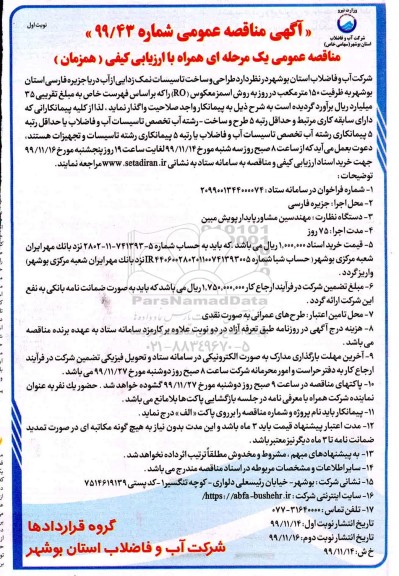 وزارت نیرو
شرکت آب و فاضلاب
استان بوشهر (سهامی خاص)
نوبت اول
« آگهی مناقصه عمومی شماره ۹۹/۴۳ »
مناقصه عمومی یک مرحله ای همراه با ارزیابی کیفی ( همزمان )
شرکت آب و فاضلاب استان بوشهر در نظر دارد طراحی و ساخت تاسیسات نمک زدایی از آب دریا جزیره فارسی استان
بوشهر به ظرفیت ۱۵۰ متر مکعب در روز به روش اسمز معکوس (RO) را که بر اساس فهرست خاص به مبلغ تقریبی ۳۵
میلیارد ریال برآورد گردیده است به شرح ذیل به پیمانکار واجد صلاحیت واگذار نماید . لذا از کلیه پیمانکارانی که
دارای سابقه کاری مرتبط و حداقل رتبه ۵ طرح و ساخت - رشته آب تخصص تاسیسات آب و فاضلاب یا حداقل رتبه
۵ پیمانکاری رشته آب تخصص تاسیسات آب و فاضلاب یا رتبه ۵ پیمانکاری رشته تاسیسات و تجهیزات هستند،
دعوت بعمل می آید که از ساعت ۸ صبح روز سه شنبه مورخ ۹۹/۱۱/۱۴ لغایت ساعت ۱۹ روز پنجشنبه مورخ ۹۹/۱۱/۱۶
جهت خرید اسناد ارزیابی کیفی و مناقصه به سامانه ستاد به نشانی www.setadiran.ir مراجعه نمایند.
توضیحات :
۱- شماره فراخوان در سامانه ستاد : ۲۰۹۹۰۰۱۳۴۴۰۰۰۰۷۴
۲- محل اجرا: جزیره فارسی
۳- دستگاه نظارت : مهندسین مشاور پایدار پویش مبین
۴- مدت اجرا: ۷۵ روز
۵- قیمت خرید اسناد ۱,۰۰۰,۰۰۰ ریال می باشد .که باید به حساب شماره ۵-۷۴۱۳۹۳-۱۱-۲۸۰۲ نزد بانک مهر ایران
شعبه مرکزی بوشهر ( حساب شبا شماره IR۴۴۰۶۰۰۲۸۰۲۰۱۱۰۰۷۴۱۳۹۳۰۰۵ نزد بانک مهر ایران شعبه مرکزی بوشهر)
واریز گردد .
۶- مبلغ تضمین شرکت در فرآیند ارجاع کار ۱,۷۵۰,۰۰۰,۰۰۰ ریال می باشد که باید به صورت ضمانت نامه بانکی به نفع
این شرکت ارائه گردد .
۷- محل تامین اعتبار : طرح های عمرانی به صورت نقدی
۸- هزینه درج آگهی در روزنامه طبق تعرفه آزاد در دو نوبت علاوه بر کارمزد سامانه ستاد به عهده برنده مناقصه
می باشد.
۹- آخرین مهلت بارگذاری مدارک به صورت الکترونیکی در سامانه ستاد و تحویل فیزیکی تضمین شرکت در فرآیند
ارجاع کار به دفتر حراست و امور محرمانه شرکت ساعت ۸ صبح روز دوشنبه مورخ ۹۹/۱۱/۲۷ می باشد.
۱۰- پاکتهای مناقصه در ساعت ۹ صبح روز دوشنبه مورخ ۹۹/۱۱/۲۷ گشوده خواهد شد . حضور یک نفر به عنوان
نماینده شرکت همراه با معرفی نامه در جلسه بازگشایی پاکت ها بلامانع می باشد.
۱۱- پیمانکار باید نام پروژه و شماره مناقصه را بر روی پاکت « الف » درج نماید.
۱۲- مدت اعتبار پیشنهاد قیمت باید ۳ ماه باشد و این مدت بدون نیاز به هیچ گونه مکاتبه ای در صورت تمدید
ضمانت نامه تا ۳ ماه دیگر نیز معتبر باشد.
۱۳- به پیشنهادهای مبهم ، مشروط و مخدوش مطلقاً ترتیب اثر داده نخواهد شد.
۱۴- سایر اطلاعات و مشخصات مربوطه در اسناد مناقصه مندرج می باشد.
۱۵- نشانی شرکت : بوشهر- خیابان رئیسعلی دلواری - کوچه تنگسیر۱ - کد پستی ۷۵۱۴۶۱۹۱۳۹
۱۶- سایت اینترنتی شرکت : https://abfa-bushehr.ir/
۱۷- تلفن تماس : ۰۷۷-۳۱۶۴۰۰۰۰
تاریخ انتشار نوبت اول: ۹۹/۱۱/۱۴
تاریخ انتشار نوبت دوم: ۹۹/۱۱/۱۶
خ ش : ۹۹/۱۱/۱۴
گروه قراردادها
شرکت آب و فاضلاب استان بوشهر
ParsNamadData
۰۲۱-۸۸۳۴۹۶۷۰-۵